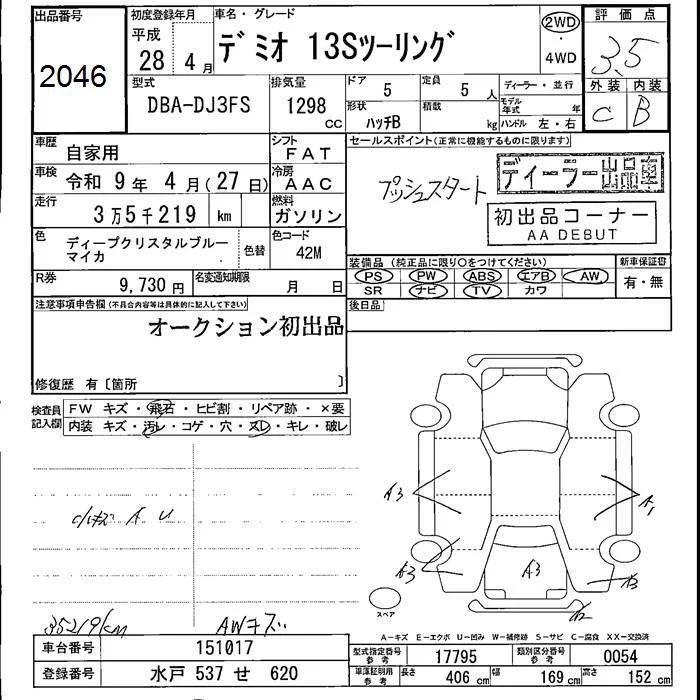 出品番号
2046
初度登録年月
平成
28 4月
車名・グレード
デミオ 13Sツーリング
2WD
・
4WD
評価点
3.5
型式
DBA-DJ3FS
排気量
1298
CC
ドア
5
定員
5 人
ディーラー・並行
形状
ハッチB
積載
kg
モデル年式 年
ハンドル 左・右
外装 内装
C B
車歴
自家用
シフト
FAT
セールスポイント(正常に機能するものに限ります)
車検
令和 9年 4月(27日)
冷房
AAC
プッシュスタート
ディーラー出品車
走行
3万5千219 km
燃料
ガソリン
初出品コーナー
AA DEBUT
色
ディープクリスタルブルー
マイカ
色替
色コード
42M
装備品(純正品に限り○をつけてください)
PS PW ABS エアB AW
SR ナビ TV カワ
新車保証書
有・無
R券
9,730円
名変通知期限
月 日
後日品
注意事項申告欄(不具合内容等は具体的に記入して下さい)
オークション初出品
修復歴 有〔箇所 〕
検査員
記入欄
FW キズ・飛石・ヒビ割・リペア跡・×要
内装 キズ・汚レ・コゲ・穴・スレ・キレ・破レ
A3
A1
A U
A3
A3
A3
A2
スペア
35219km
AWキズ
A-キズ E-エクボ U-凹み W-補修跡 S-サビ C-腐食 XX-交換済
車台番号
151017
型式指定番号
参考
17795
類別区分番号
参考
0054
登録番号
水戸 537 せ 620
車庫証明用
参考
長さ 406 cm
幅 169 cm
高さ 152 cm